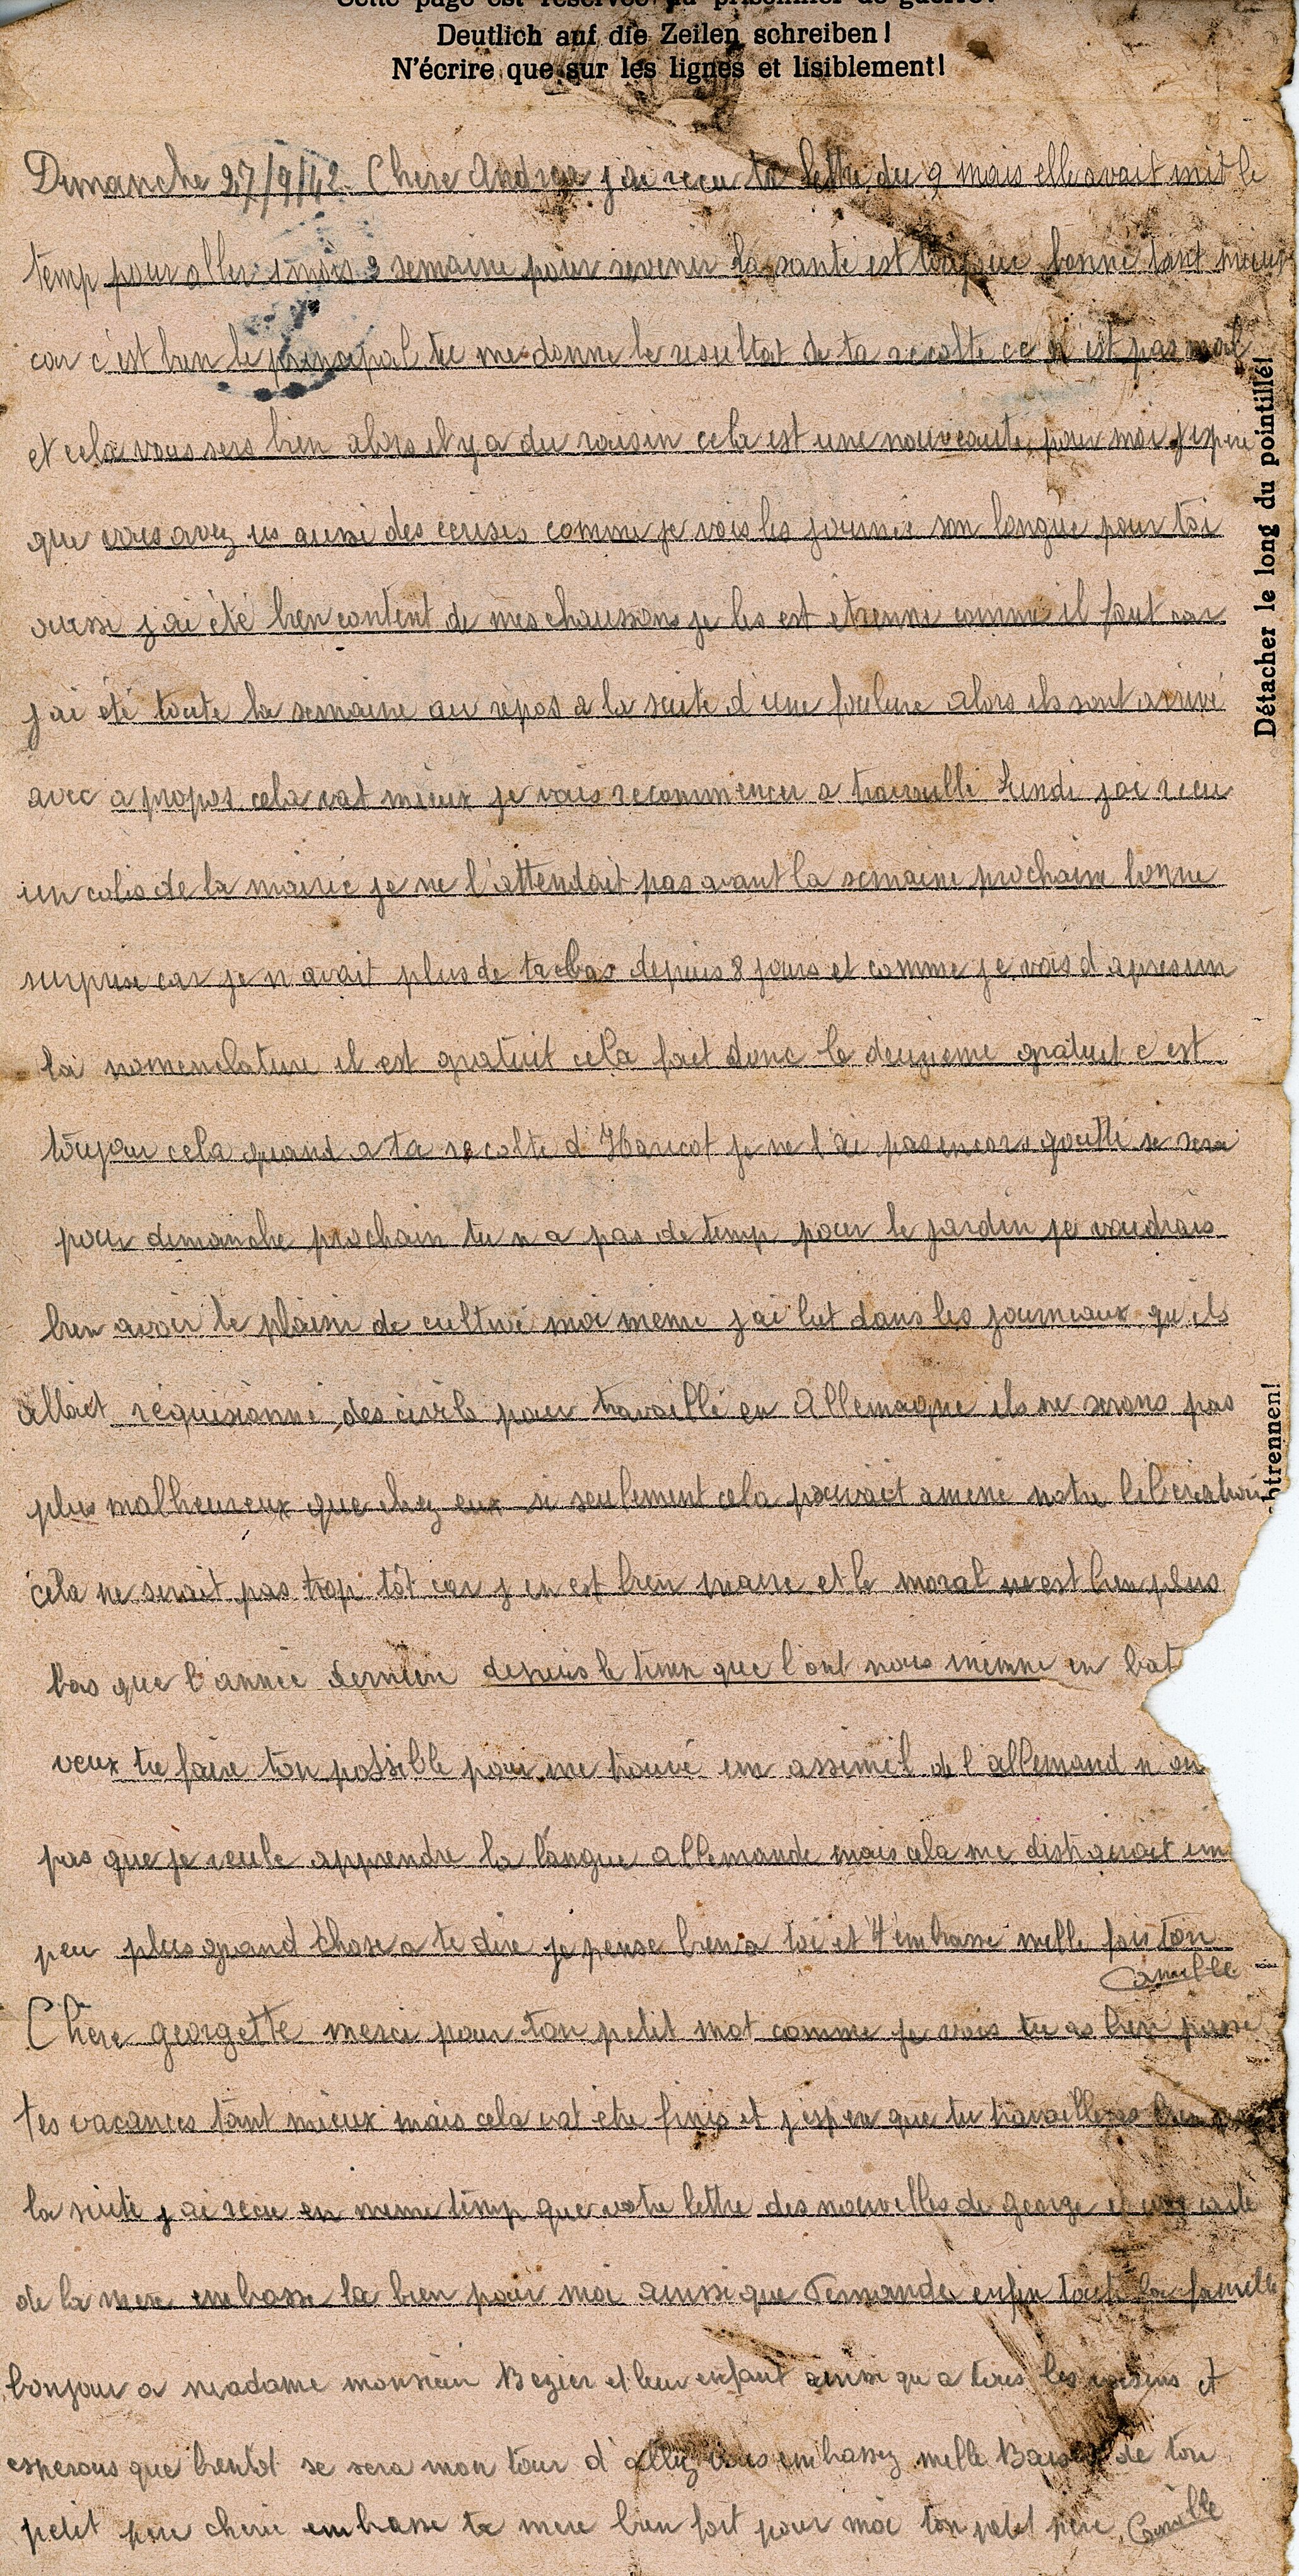 Cette page est réservée au prisonnier de guerre!
Deutlich auf die Zeilen schreiben!
N'écrire que sur les lignes et lisiblement!
Dimanche 27/9/42 Chere Andrea j'ai recu ta lettre du 9 mais elle avait mit le
temp pour aller 1 mois 3 semaine pour revenir la santé est toujour bonne tant mieux
car c'est bien le principal tu me donne le resultat de ta recolte ce n'est pas mal
et cela vous sers bien alors il y a du raisin cela est une nouveauté pour moi j'espere
que vous avez us aussi des cerises comme je vois les journée son longue pour toi
aussi j'ai été bien content de mes chaussons je les est etrenne comme il faut car
j'ai été toute la semaine au repos a la suite d'une foulure alors ils sont arrivé
avec a propos cela vat mieux je vais recommencer a travaille Lundi j'ai recu
un colis de la mairie je ne l'attendait pas avant la semaine prochaine bonne
surprise car je n'avait plus de tabac depuis 8 jours et comme je vois d'apres
la nomenclature il est gratuit cela fait donc le deuxieme gratuit c'est
toujour cela quand a ta recolte d'Haricot je ne l'ai pas encore goutté se sera
pour dimanche prochain tu n'a pas de temp pour le jardin je voudrais
bien avoir le plaisir de cultivé moi meme j'ai lut dans les journeaux qu'ils
allait réquisionné des civils pour travaillé en Allemagne ils ne serons pas
plus malheureux que chez eux si seulement cela pouvait amené notre liberation
cela ne serait pas trop tôt car j'en est bien marre et le moral est bien plus
bas que l'année derniere depuis le temp que l'ont nous mèmne en bat
veux tu faire ton possible pour me trouvé un assimil de l'allemand non
pas que je veule apprendre la langue allemande mais cela me distrairait un
peu plus grand chose a te dire je pense bien a toi et t'embrasse mille fois ton
Camille
Chère georgette merci pour ton petit mot comme je vois tu as bien passé
tes vacances tant mieux mais cela vat être finis et j'espere que tu travailleras bien
la suite j'ai recu en meme temp que votre lettre des nouvelles de George et une carte
de la mere embrasse la bien pour moi ainsi que Fernande enfin toute la famille
bonjour a madame monsieur Bezier et leur enfant ainsi qu'a tous les voisins et
esperons que bientôt se sera mon tour d'allez vous embrassez mille Baisers de ton
petit pere cherie embrasse ta mere bien fort pour moi ton petit père Camille
Détacher le long du pointillé!
btrennen!